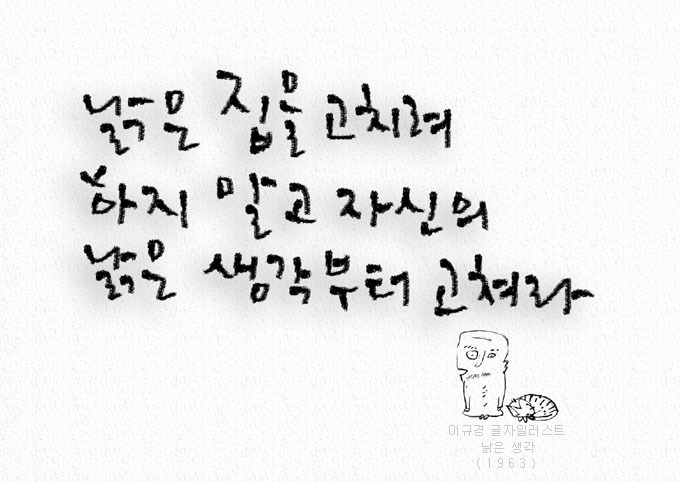 낡은 집을 고치려
하지 말고 자신의
낡은 생각부터 고쳐라
이규경 글자일러스트
낡은 생각
(1963)